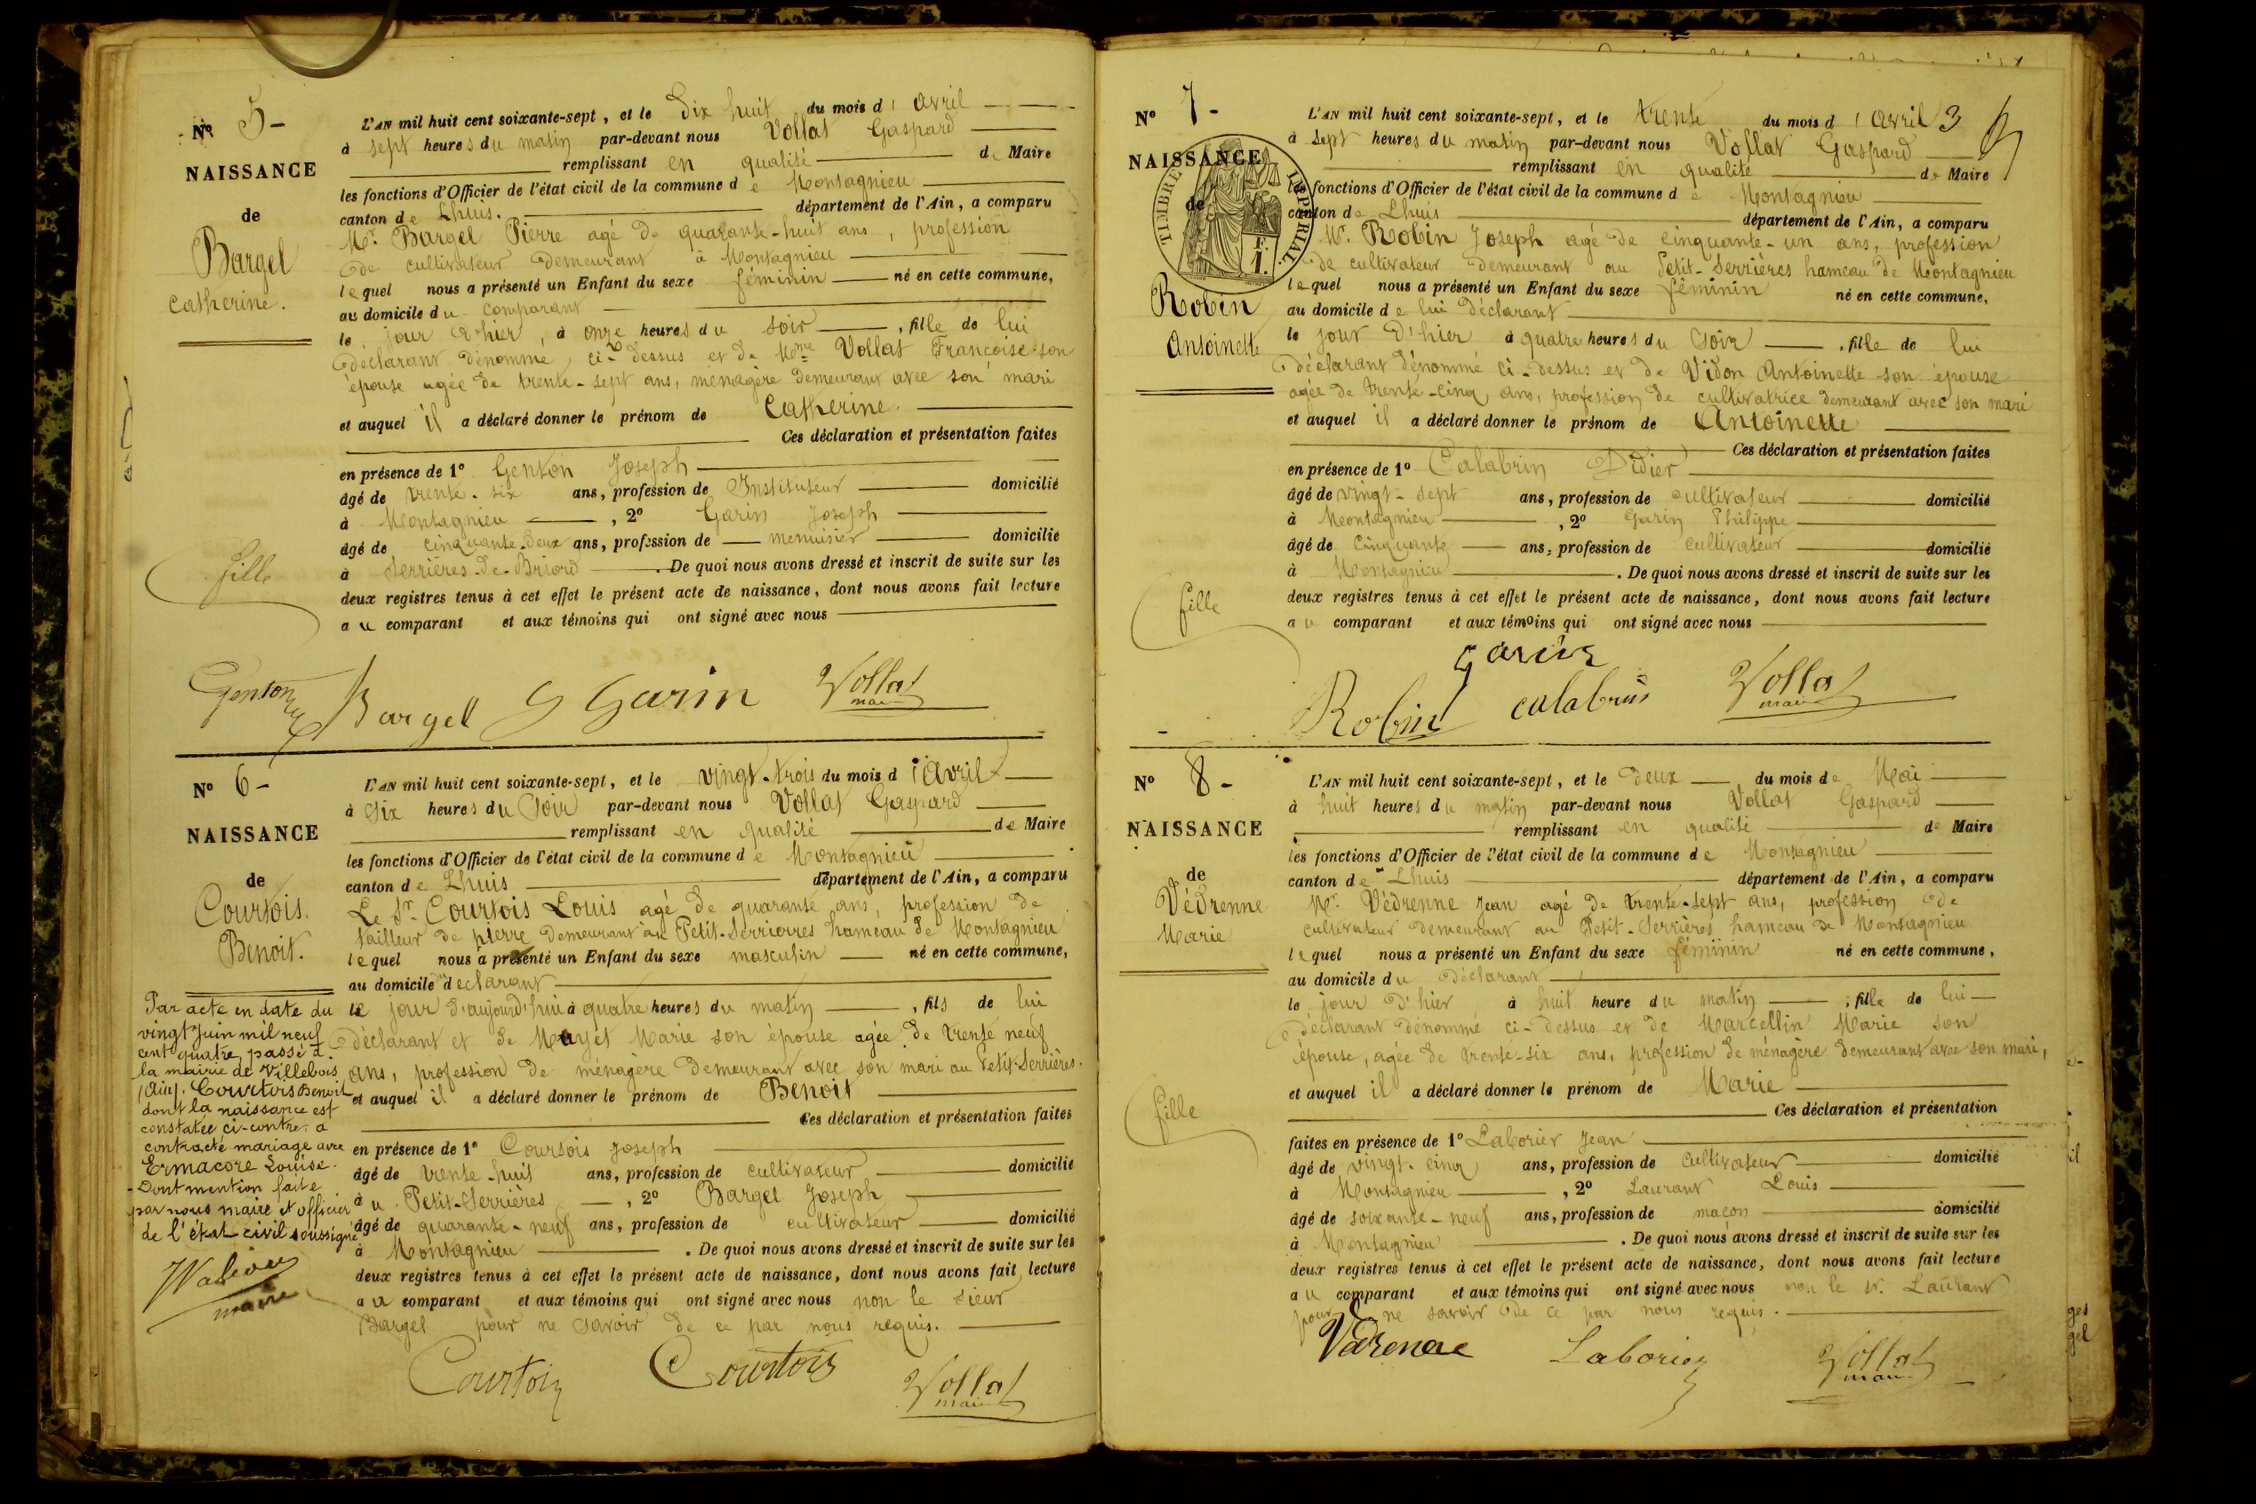 Nº 5-
NAISSANCE
de
Bargel
Catherine.
fille
L'AN mil huit cent soixante-sept, et le Dix huit du mois d' avril
à sept heures du matin par-devant nous Vollat Gaspard
remplissant en qualité de Maire
les fonctions d'Officier de l'état civil de la commune de Montagnieu
canton de Lhuis. département de l'Ain, a comparu
Mr. Bargel Pierre agé de quarante-huit ans, profession
de cultivateur demeurant à Montagnieu
lequel nous a présenté un Enfant du sexe féminin né en cette commune,
au domicile du comparant
le jour d'hier, à onze heures du soir, fille de lui
déclarant dénommé ci-dessus et de Mme Vollat Françoise son
épouse agée de trente-sept ans, ménagère demeurant avec son mari
et auquel il a déclaré donner le prénom de Catherine.
Ces déclaration et présentation faites
en présence de 1º Genton Joseph
âgé de trente-six ans, profession de Instituteur domicilié
à Montagnieu, 2º Garin Joseph
âgé de cinquante-deux ans, profession de menuisier domicilié
à Serrières-de-Briord. De quoi nous avons dressé et inscrit de suite sur les
deux registres tenus à cet effet le présent acte de naissance, dont nous avons fait lecture
au comparant et aux témoins qui ont signé avec nous
Genton Bargel G Garin Vollat
maire
Nº 6-
NAISSANCE
de
Courtois.
Benoit.
Par acte en date du
vingt Juin mil neuf
cent quatre passé à
la mairie de Villebois
(Ain). Courtois Benoit
dont la naissance est
constatée ci-contre, a
contracté mariage avec
Ermacore Louise.
- Dont mention faite
par nous maire et officier
de l'état civil soussigné
maire
L'AN mil huit cent soixante-sept, et le vingt-trois du mois d'Avril
à Six heures du Soir par-devant nous Vollat Gaspard
remplissant en qualité de Maire
les fonctions d'Officier de l'état civil de la commune de Montagnieu
canton de Lhuis département de l'Ain, a comparu
Le Sr. Courtois Louis agé de quarante ans, profession de
tailleur de pierre demeurant au Petit-Serrierres hameau de Montagnieu
lequel nous a présenté un Enfant du sexe masculin né en cette commune,
au domicile declarant
le jour d'aujourd'hui à quatre heures du matin, fils de lui
déclarant et de Marie son épouse agée de trente neuf
ans, profession de ménagère demeurant avec son mari au Petit-Serrières.
et auquel il a déclaré donner le prénom de Benoit
Ces déclaration et présentation faites
en présence de 1º Courtois Joseph
âgé de trente-huit ans, profession de cultivateur domicilié
à u Petit-Serrières, 2º Bargel Joseph
âgé de quarante-neuf ans, profession de cultivateur domicilié
à Montagnieu. De quoi nous avons dressé et inscrit de suite sur les
deux registres tenus à cet effet le présent acte de naissance, dont nous avons fait lecture
au comparant et aux témoins qui ont signé avec nous non le sieur
Bargel pour ne savoir de ce par nous requis.
Courtois Courtois Vollat
maire
Nº 7-
NAISSANCE
de
TIMBRE IMPÉRIAL
F.
1.
Robin
Antoinette
fille
L'AN mil huit cent soixante-sept, et le trente du mois d' avril 3
à sept heures du matin par-devant nous Vollat Gaspard
remplissant en qualité de Maire
les fonctions d'Officier de l'état civil de la commune de Montagnieu
canton de Lhuis département de l'Ain, a comparu
Mr. Robin Joseph agé de cinquante-un ans, profession
de cultivateur demeurant au Petit-Serrières hameau de Montagnieu
lequel nous a présenté un Enfant du sexe féminin né en cette commune,
au domicile de lui déclarant
le jour d'hier à quatre heures du Soir, fille de lui
déclarant dénommé ci-dessus et de Vidon Antoinette son épouse
agée de trente-cinq ans, profession de cultivatrice demeurant avec son mari
et auquel il a déclaré donner le prénom de Antoinette
Ces déclaration et présentation faites
en présence de 1º Calabrin Didier
âgé de vingt-sept ans, profession de cultivateur domicilié
à Montagnieu, 2º Garin Philippe
âgé de Cinquante ans, profession de cultivateur domicilié
à Montagnieu. De quoi nous avons dressé et inscrit de suite sur les
deux registres tenus à cet effet le présent acte de naissance, dont nous avons fait lecture
au comparant et aux témoins qui ont signé avec nous
Garin
Robin calabrin Vollat
maire
Nº 8-
NAISSANCE
de
Védrenne
Marie
fille
L'AN mil huit cent soixante-sept, et le deux du mois de Mai
à huit heures du matin par-devant nous Vollat Gaspard
remplissant en qualité de Maire
les fonctions d'Officier de l'état civil de la commune de Montagnieu
canton de Lhuis département de l'Ain, a comparu
Mr. Védrenne Jean agé de trente-sept ans, profession de
cultivateur demeurant au Petit-Serrières hameau de Montagnieu
lequel nous a présenté un Enfant du sexe féminin né en cette commune,
au domicile du déclarant
le jour d'hier à huit heure du matin, fille de lui
déclarant dénommé ci-dessus et de Marcellin Marie son
épouse, agée de trente-six ans, profession de ménagère demeurant avec son mari,
et auquel il a déclaré donner le prénom de Marie
Ces déclaration et présentation
faites en présence de 1º Laborier Jean
âgé de vingt-cinq ans, profession de Cultivateur domicilié
à Montagnieu, 2º Laurant Louis
âgé de soixante-neuf ans, profession de maçon domicilié
à Montagnieu. De quoi nous avons dressé et inscrit de suite sur les
deux registres tenus à cet effet le présent acte de naissance, dont nous avons fait lecture
au comparant et aux témoins qui ont signé avec nous non le sr. Laurant
pour ne savoir de ce par nous requis.
Laborier Vollat
maire